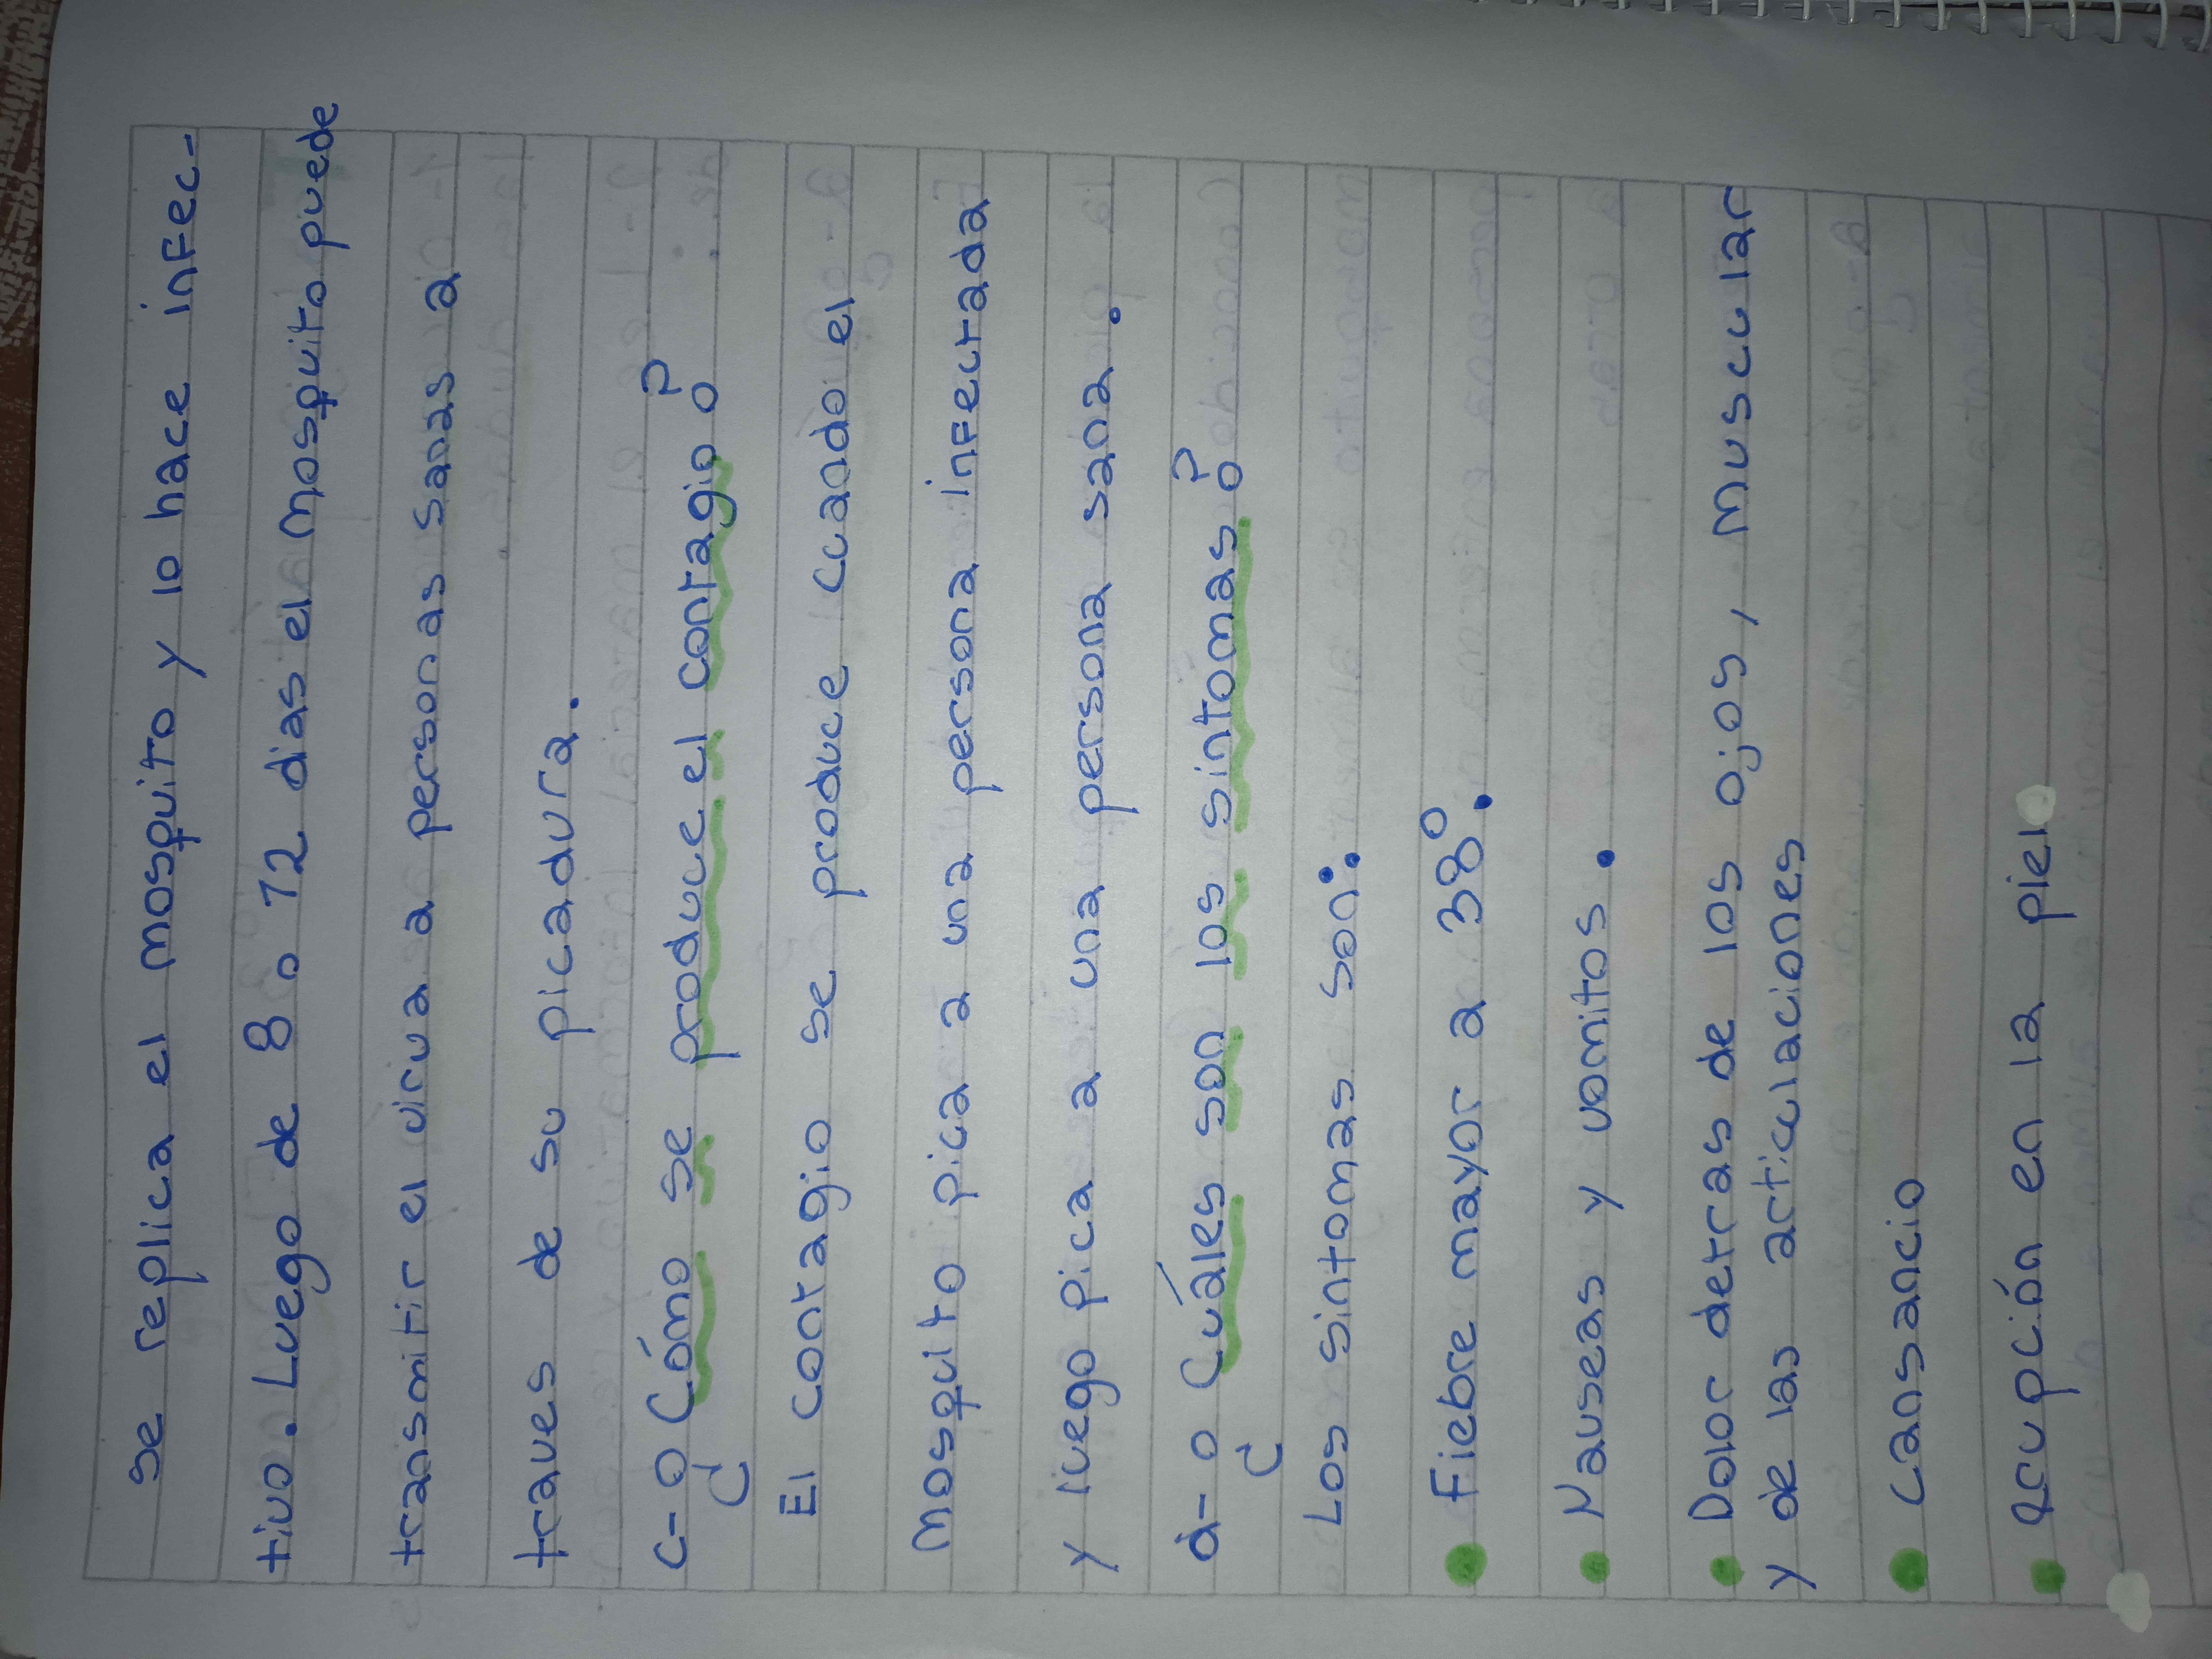 se replica el mosquito y lo hace infec-
tivo. Luego de 8 o 12 dias el mosquito puede
transmitir el virua a personas sanas a
traves de su picadura.
c- ¿Cómo se produce el contagio?
El contagio se produce cuando el
mosquito pica a una persona infectada
y luego pica a una persona sana.
d- ¿Cuáles son los sintomas?
Los sintomas son:
• Fiebre mayor a 38°.
• Nauseas y vomitos.
• Dolor detras de los ojos, muscular
y de las articulaciones
• Cansancio
• Erupción en la piel